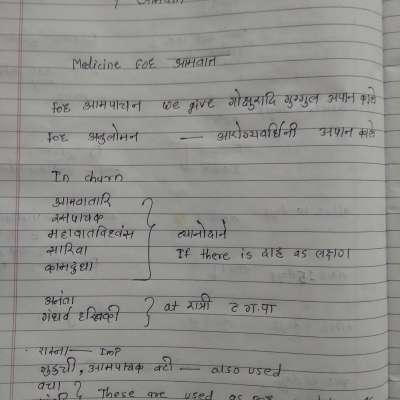 Medicine for आमवात
for आमपाचन we give गोक्षुरादि गुग्गुल अपान काले
for अनुलोमन — आरोग्यवर्धिनी अपान काले
In churn
आमवातारि
रसपाचक
महावातविध्वंस
सारिवा
कामदुधा
व्यानोदाने
If there is दाह as लक्षण
अनंता
गंधर्व हरितकी
at रात्री
रास्ना — Imp
गुडुची, आमपाचक वटी — also used
वचा
These are used as